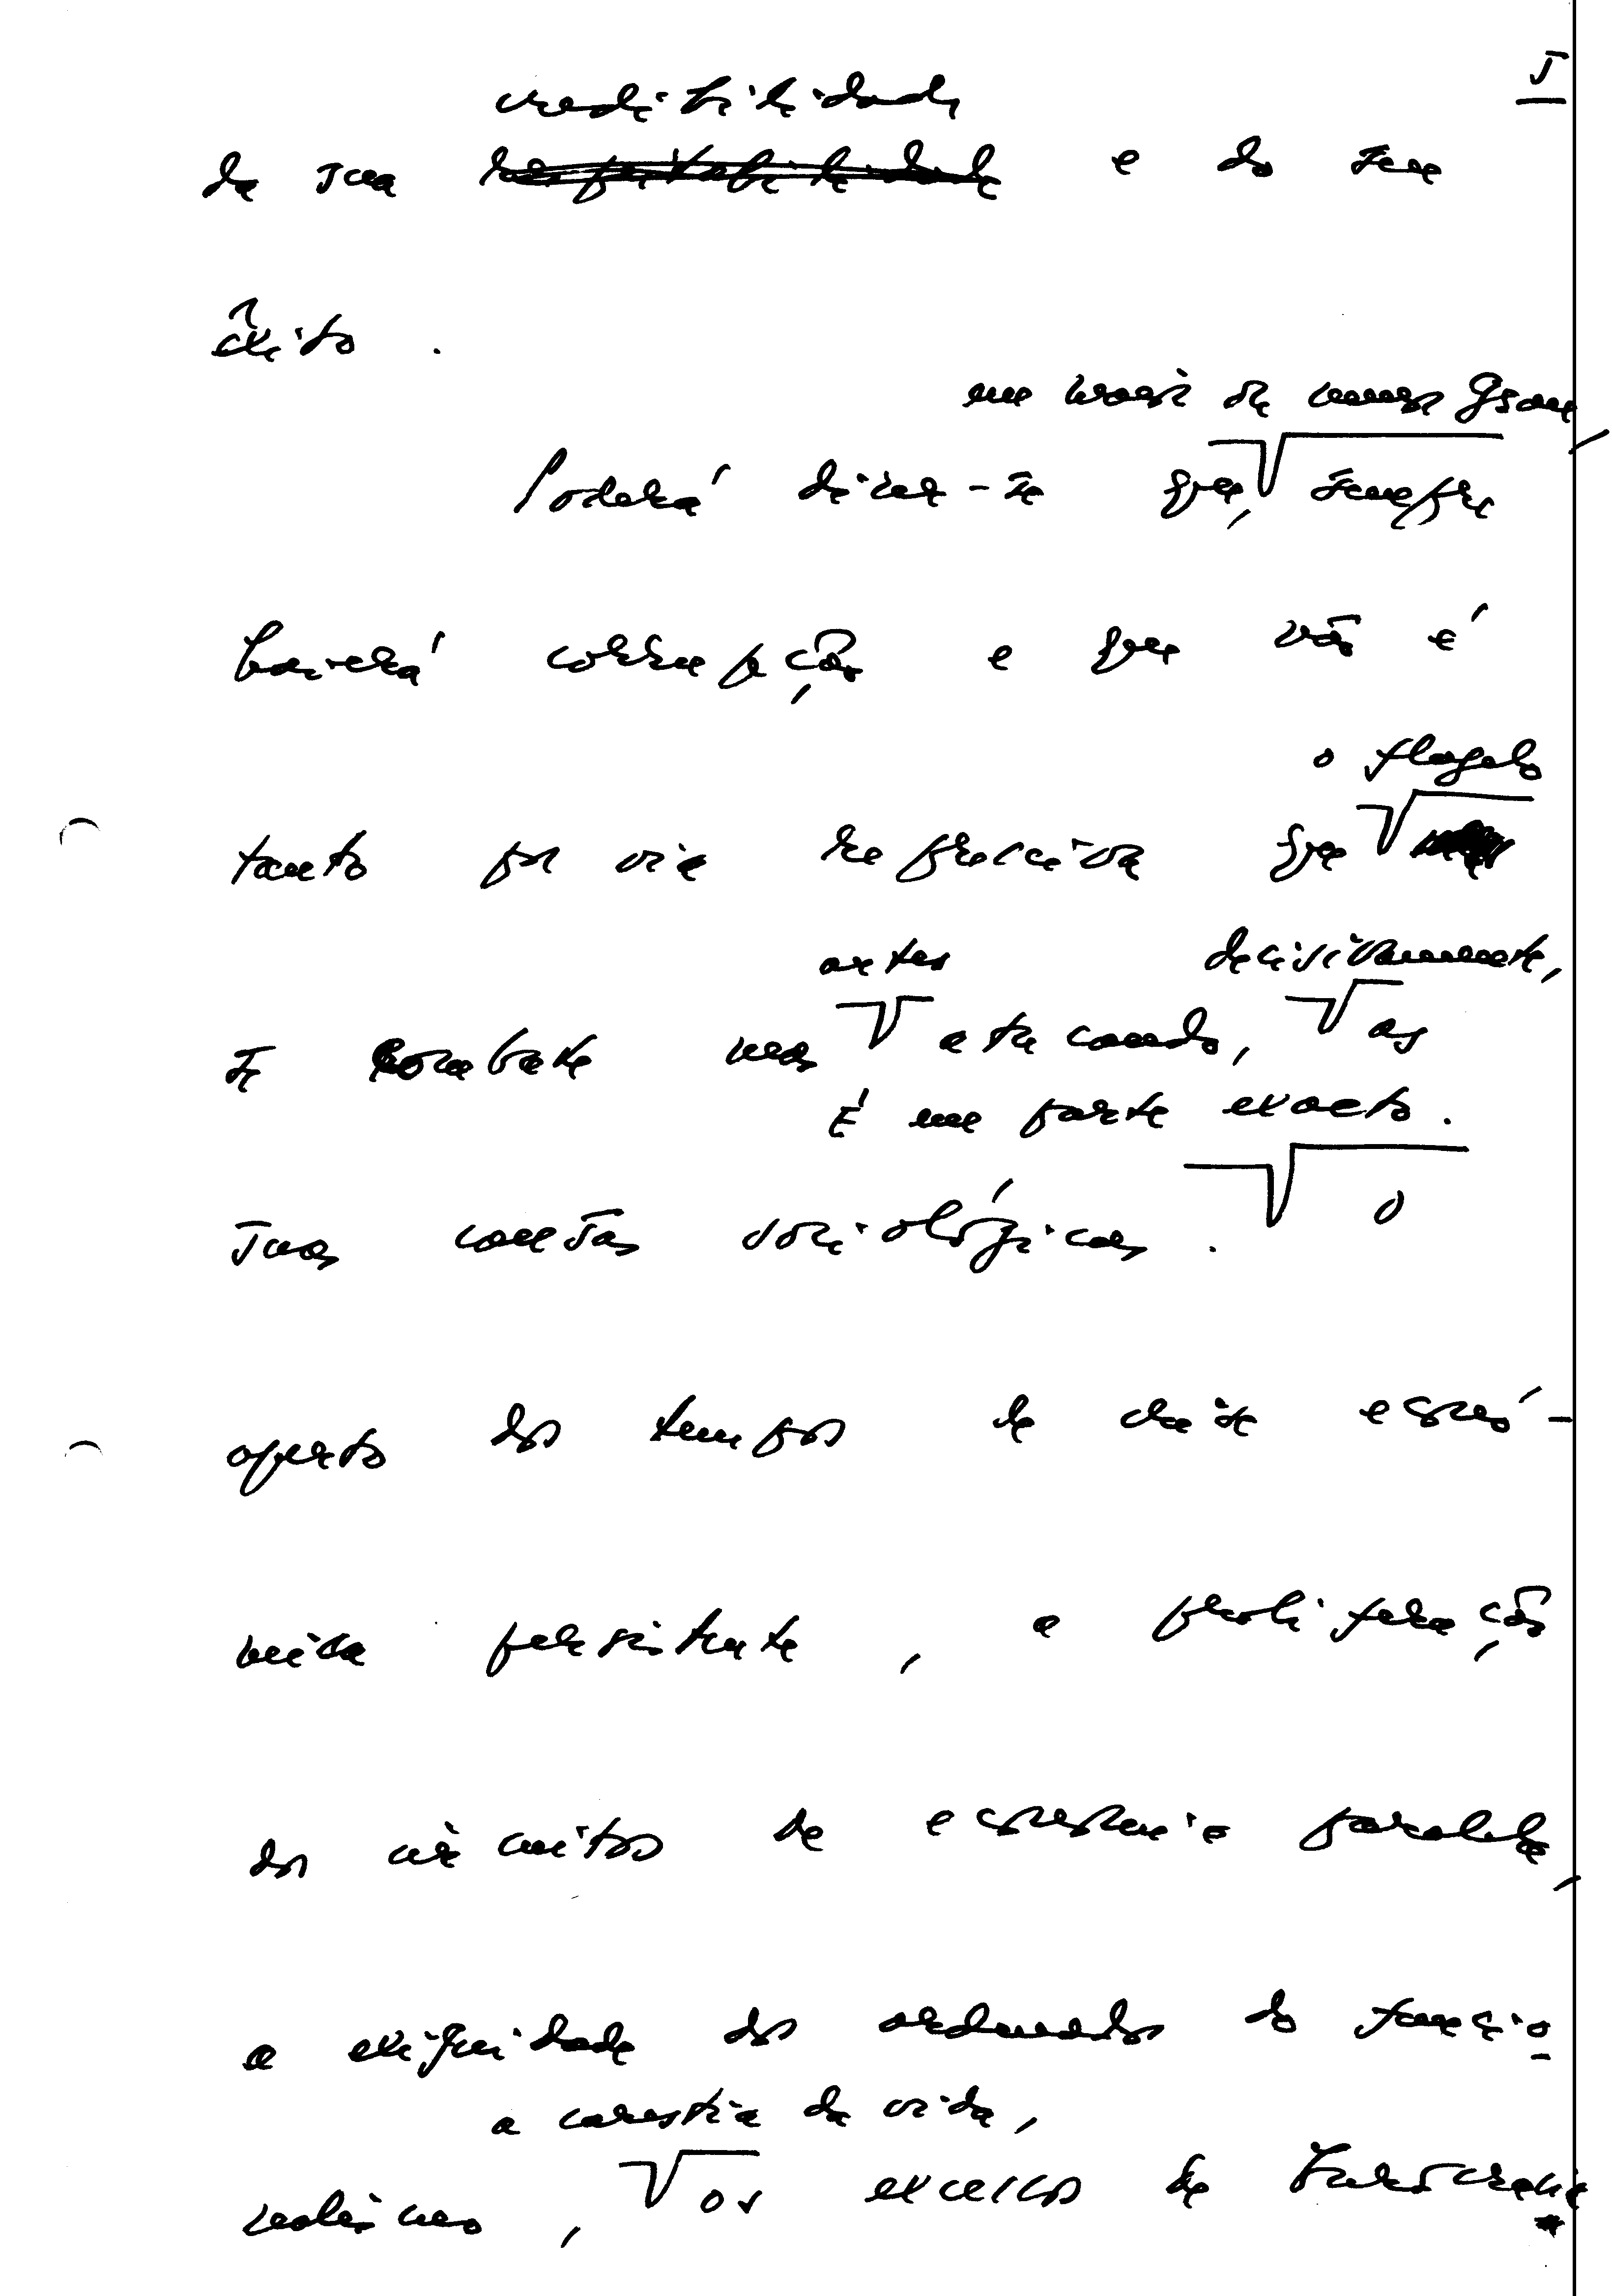 5
credibilidade
da sua respeitabilidade e do seu
êxito.
em maior ou menor grau,
Poderá dizer-se que, sempre
haverá corrupção e que não é
o flagelo
tanto por via repressiva que
antes decisivamente,
se combate mas atacando, as
É em parte exacto.
suas causas sociológicas. O
aperto dos tempos de crise econó-
mica persistente, a proliferação
dos circuitos de economia paralela,
a exiguidade dos ordenados do funcio-
a carestia da vida,
nalismo, os excessos de burocracia